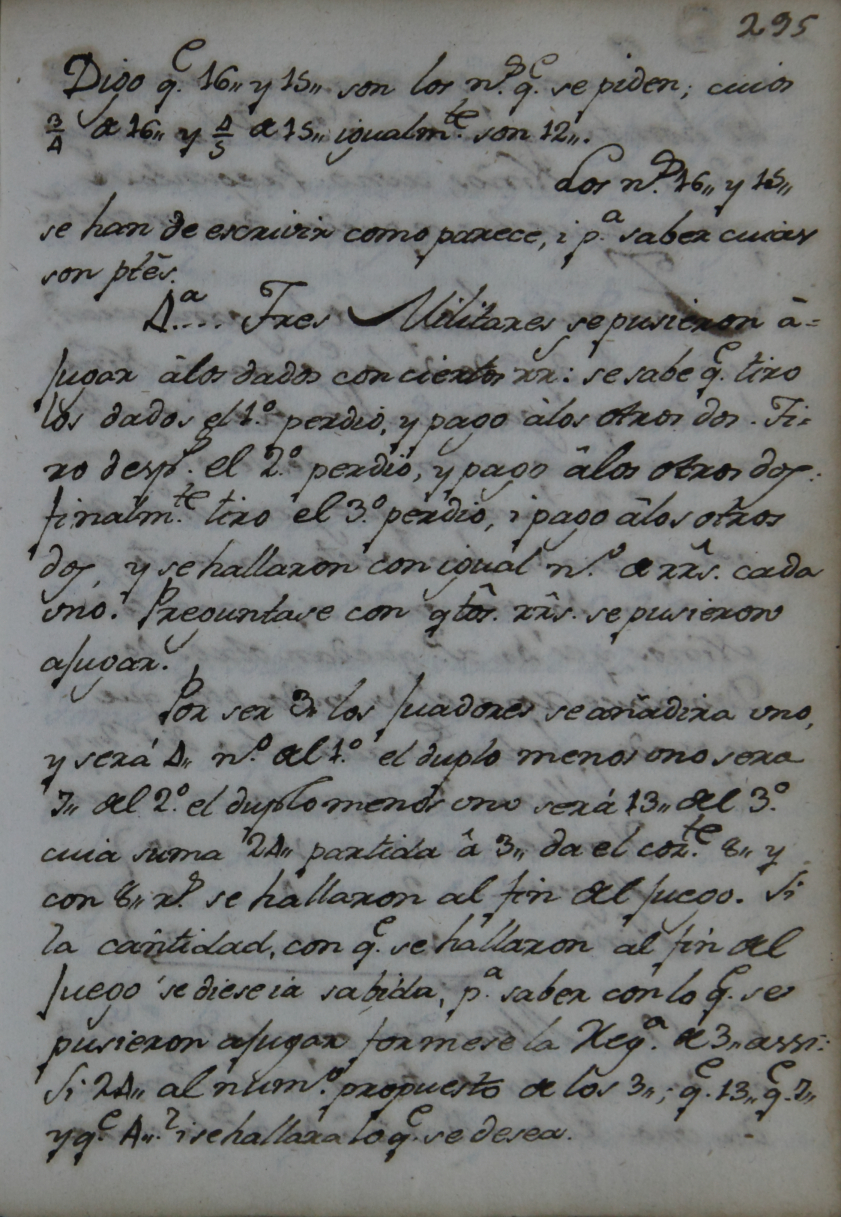 295
Digo q.e 16,, y 15,, son los n.os q.e se piden; cuios
3/4 de 16,, y 4/5 de 15,, igualm.te son 12,,.
Los n.os 16,, y 15,,
se han de escrivir como parece, i p.a saber cuias
son ptēs.
4.a .... Tres Militares se pusieron â=
jugar âlos dados con ciertos rr.s: se sabe q.e tiro
los dados el 1.o perdio, y pago âlos otros dos. Ti=
ro desp.s el 2.o perdio, y pago âlos otros dos.
finalm.te tiro el 3.o perdio, i pago âlos otros
dos, y se hallaron con igual n.o de rr̂s. cada
uno. Preguntase con qtôs. rr̂s. se pusieron
ajugar.
Por ser 3,, los juadores se añadira uno,
y será 4,, n.o del 1.o el duplo menos uno sera
7,, del 2.o el duplo menos uno será 13,, del 3.o
cuia suma 24,, partida â 3,, da el cor.te 8,, y
con 8,, r.s se hallaron al fin del juego. Si
la cantidad, con q.e se hallaron al fin del
juego se diese ia sabida, p.a saber con lo q.e se
pusieron ajugar formese la Reg.a de 3,, assi:
Si 24,, al num.o propuesto de los 3,,; q.e 13,, q.e 7,,
y q.e 4,,.? i se hallara lo q.e se desea.